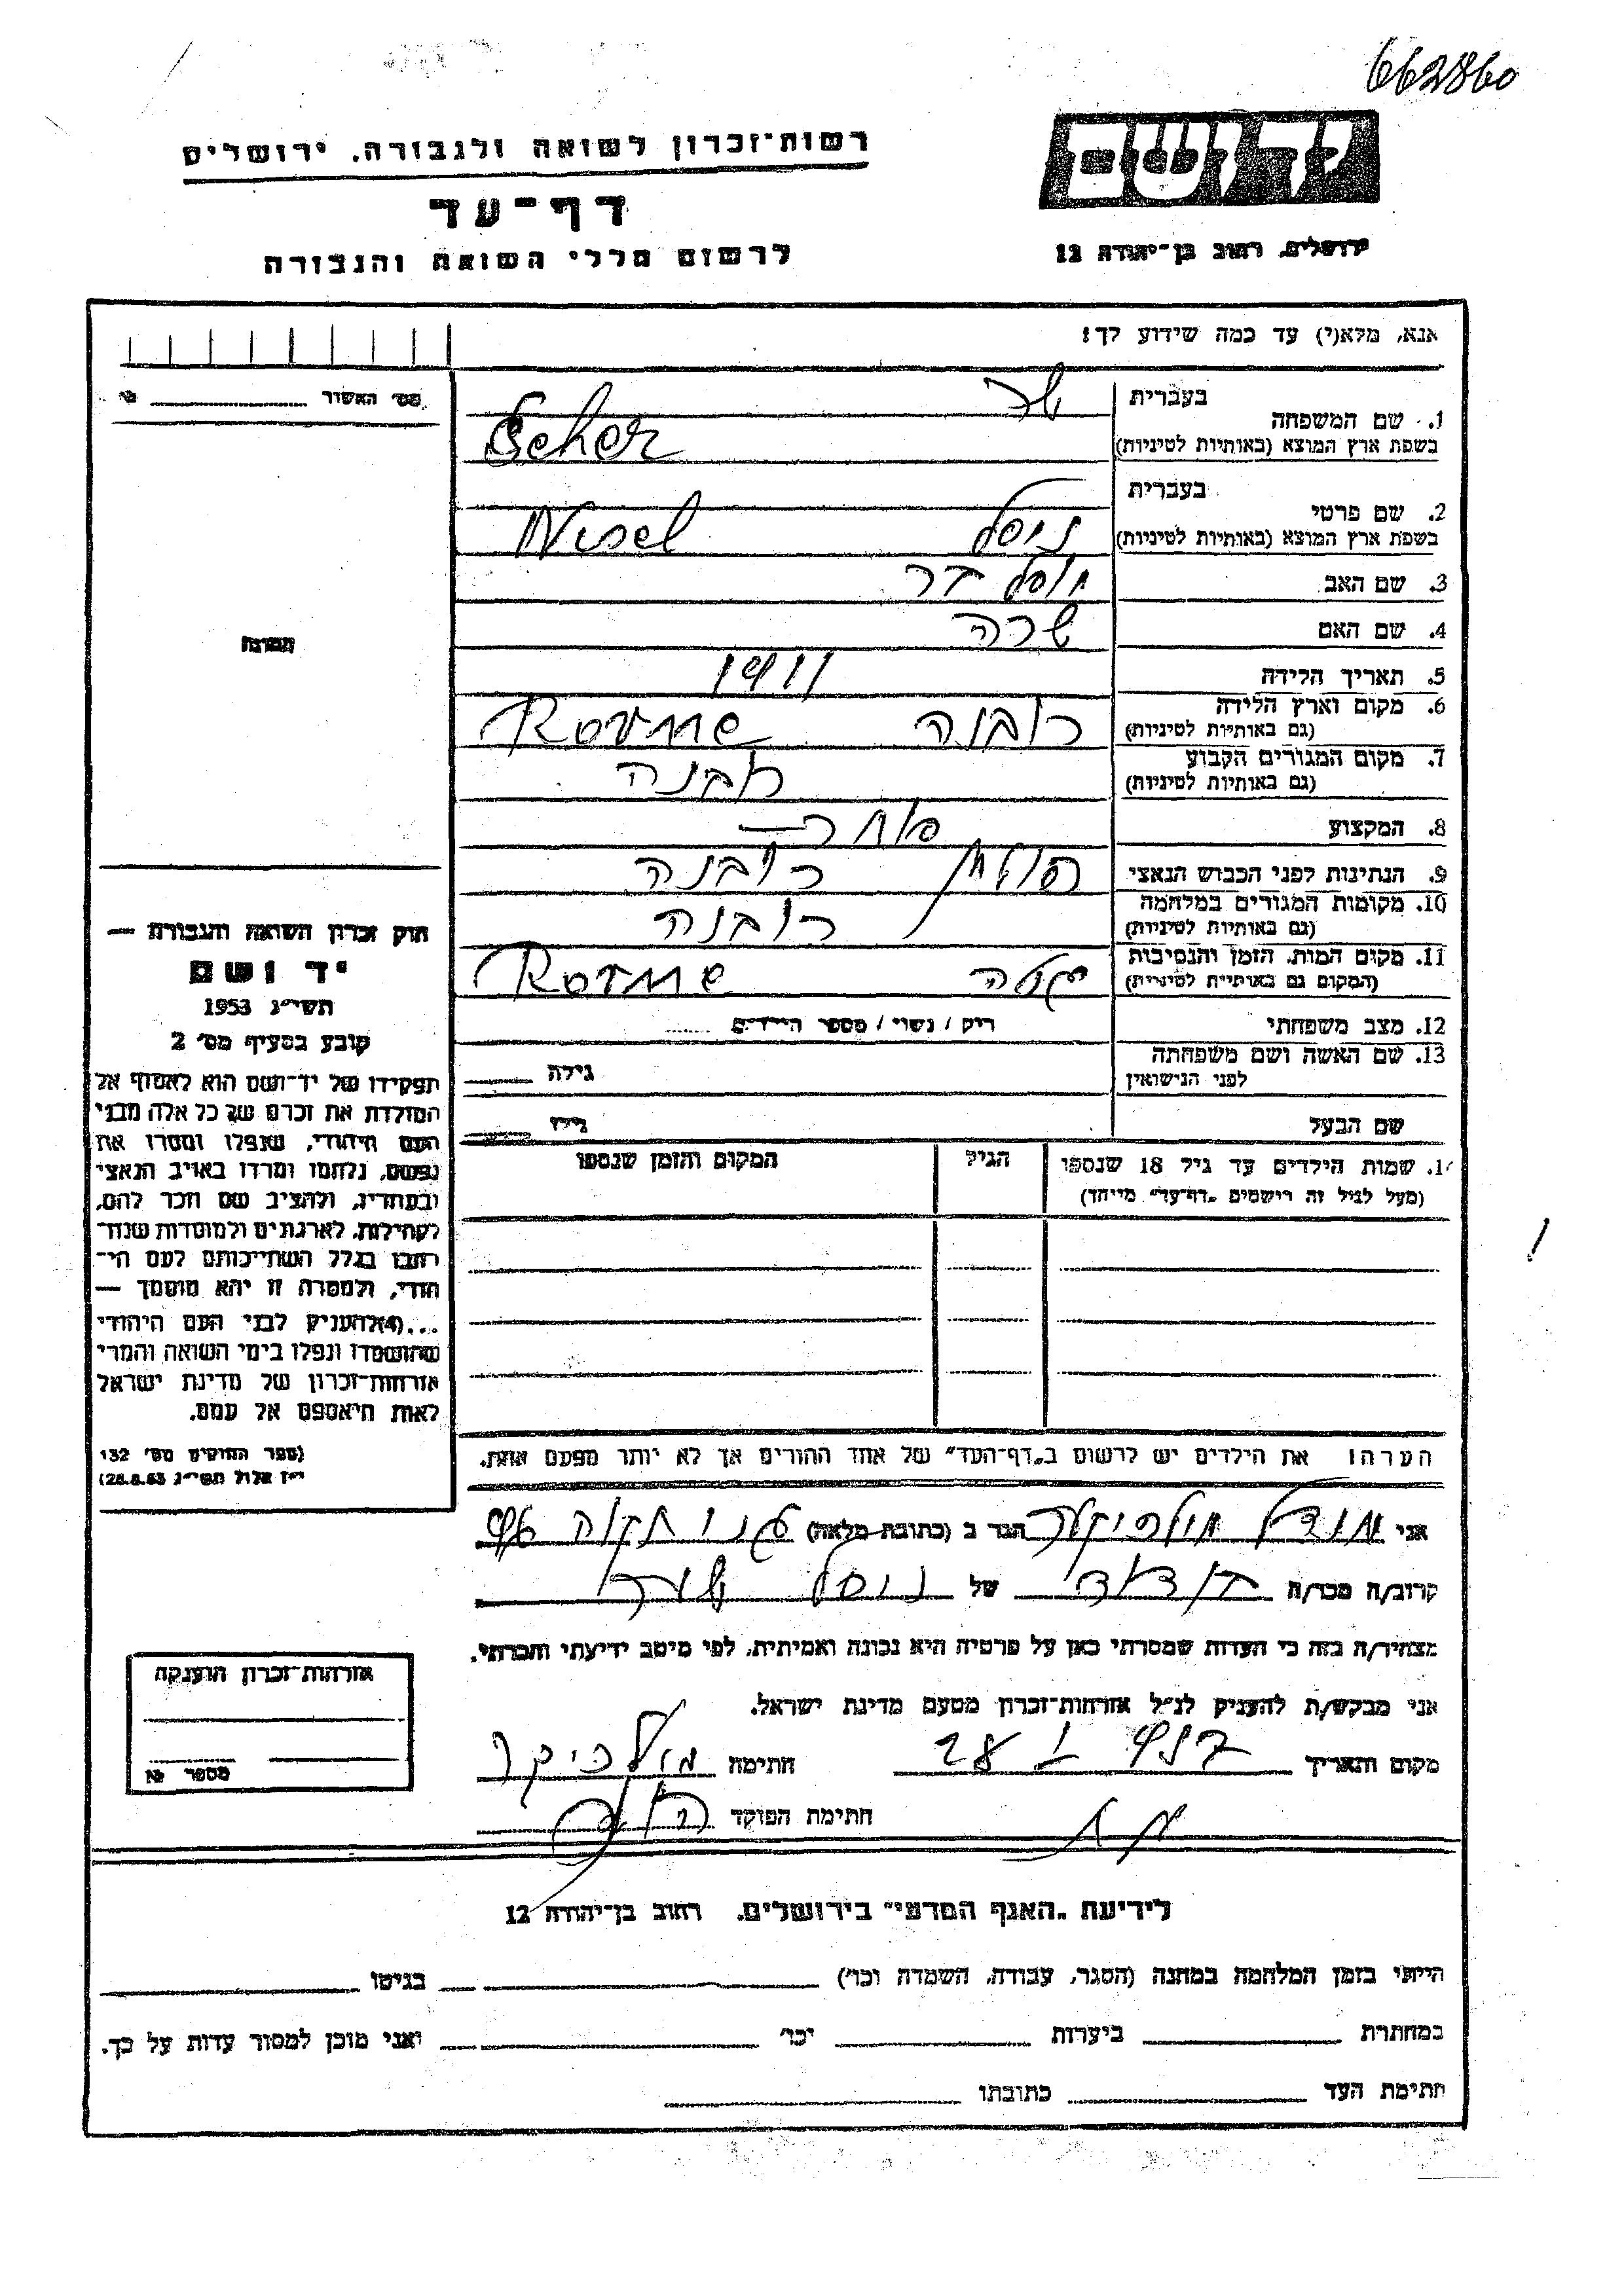 662860
רשות־זכרון לשואה ולגבורה, ירושלים
ידושם
דף־עד
לרשום חללי השואה והגבורה
ירושלים, רחוב בן־יהודה 12
אנא, מלא(י) עד כמה שידוע לך:
מס' האשור
1. שם המשפחה
בעברית
שר
בשפת ארץ המוצא (באותיות לטיניות)
Scher
2. שם פרטי
בעברית
ניסל
בשפת ארץ המוצא (באותיות לטיניות)
Nisel
3. שם האב
4. שם האם
שרה
5. תאריך הלידה
1911
6. מקום וארץ הלידה
(גם באותיות לטיניות)
רובנה Rovne
7. מקום המגורים הקבוע
(גם באותיות לטיניות)
רובנה
8. המקצוע
סוחר
9. הנתינות לפני הכבוש הנאצי
רובנה
10. מקומות המגורים במלחמה
(גם באותיות לטיניות)
רובנה
11. מקום המות, הזמן והנסיבות
(המקום גם באותיות לטיניות)
Rovne
12. מצב משפחתי
רוק / נשוי / מספר הילדים
13. שם האשה ושם משפחתה
לפני הנישואין
גילה
שם הבעל
גילו
14. שמות הילדים עד גיל 18 שנספו
(מעל לגיל זה רישמים „דף־עד" מיוחד)
הגיל
המקום והזמן שנספו
תמונה
חוק זכרון השואה והגבורה —
יד ושם
תשי"ג 1953
קובע בסעיף מס' 2
תפקידו של יד־ושם הוא לאסוף אל
המולדת את זכרם של כל אלה מבני
העם היהודי, שנפלו ומסרו את
נפשם, נלחמו ומרדו באויב הנאצי
ובעוזריו, ולהציב שם וזכר להם,
לקהילות, לארגונים ולמוסדות שנח־
רבו בגלל השתייכותם לעם הי־
הודי, ולמטרה זו יהא מוסמך —
...(4)להעניק לבני העם היהודי
שהושמדו ונפלו בימי השואה והמרי
אזרחות־זכרון של מדינת ישראל
לאות היאספם אל עמם.
(ספר החוקים מס' 132
י"ז אלול תשי"ג 28.8.53)
הערה: את הילדים יש לרשום ב„דף־העד" של אחד ההורים אך לא יותר מפעם אחת.
אני
הגר ב (כתובת מלאה)
קרוב/ה מכר/ה
של ניסל שר
מצהיר/ה בזה כי העדות שמסרתי כאן על פרטיה היא נכונה ואמיתית, לפי מיטב ידיעתי והכרתי.
אני מבקש/ת להעניק לנ"ל אזרחות־זכרון מטעם מדינת ישראל.
מקום ותאריך
חתימה
חתימת הפוקד
אזרחות־זכרון הוענקה
מספר
לידיעת „האגף המדעי" בירושלים, רחוב בן־יהודה 12
הייתי בזמן המלחמה במחנה (הסגר, עבודה, השמדה וכו')
בגיטו
במחתרת
ביערות
וכו'
ואני מוכן למסור עדות על כך.
חתימת העד
כתובתו